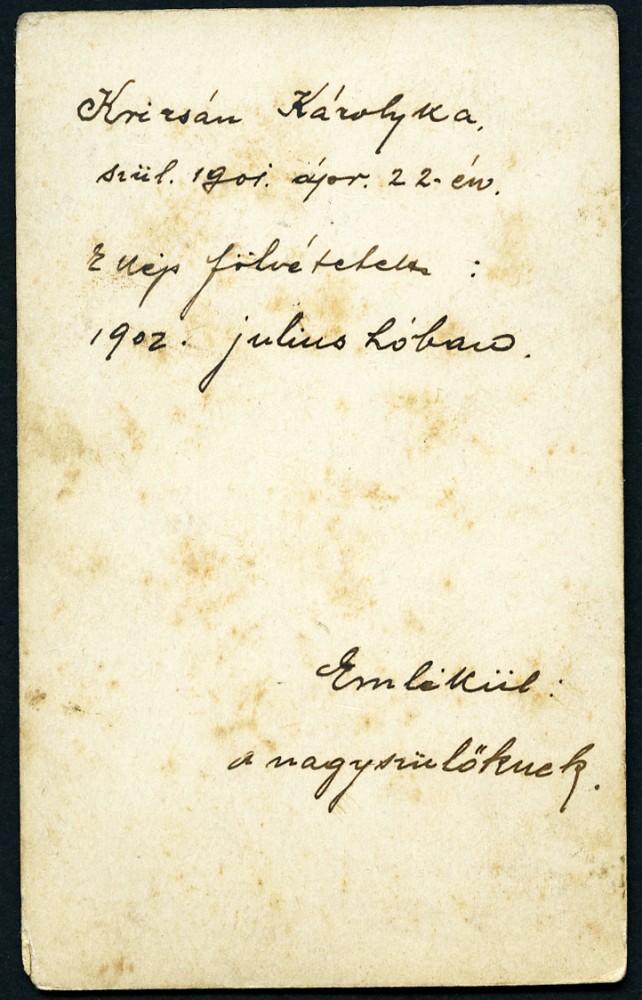 Krizsán Károlyka,
szül. 1901. ápr. 22-én.
E kép fölvétetett :
1902. julius hóban.
Emlékül:
a nagyszülőknek.